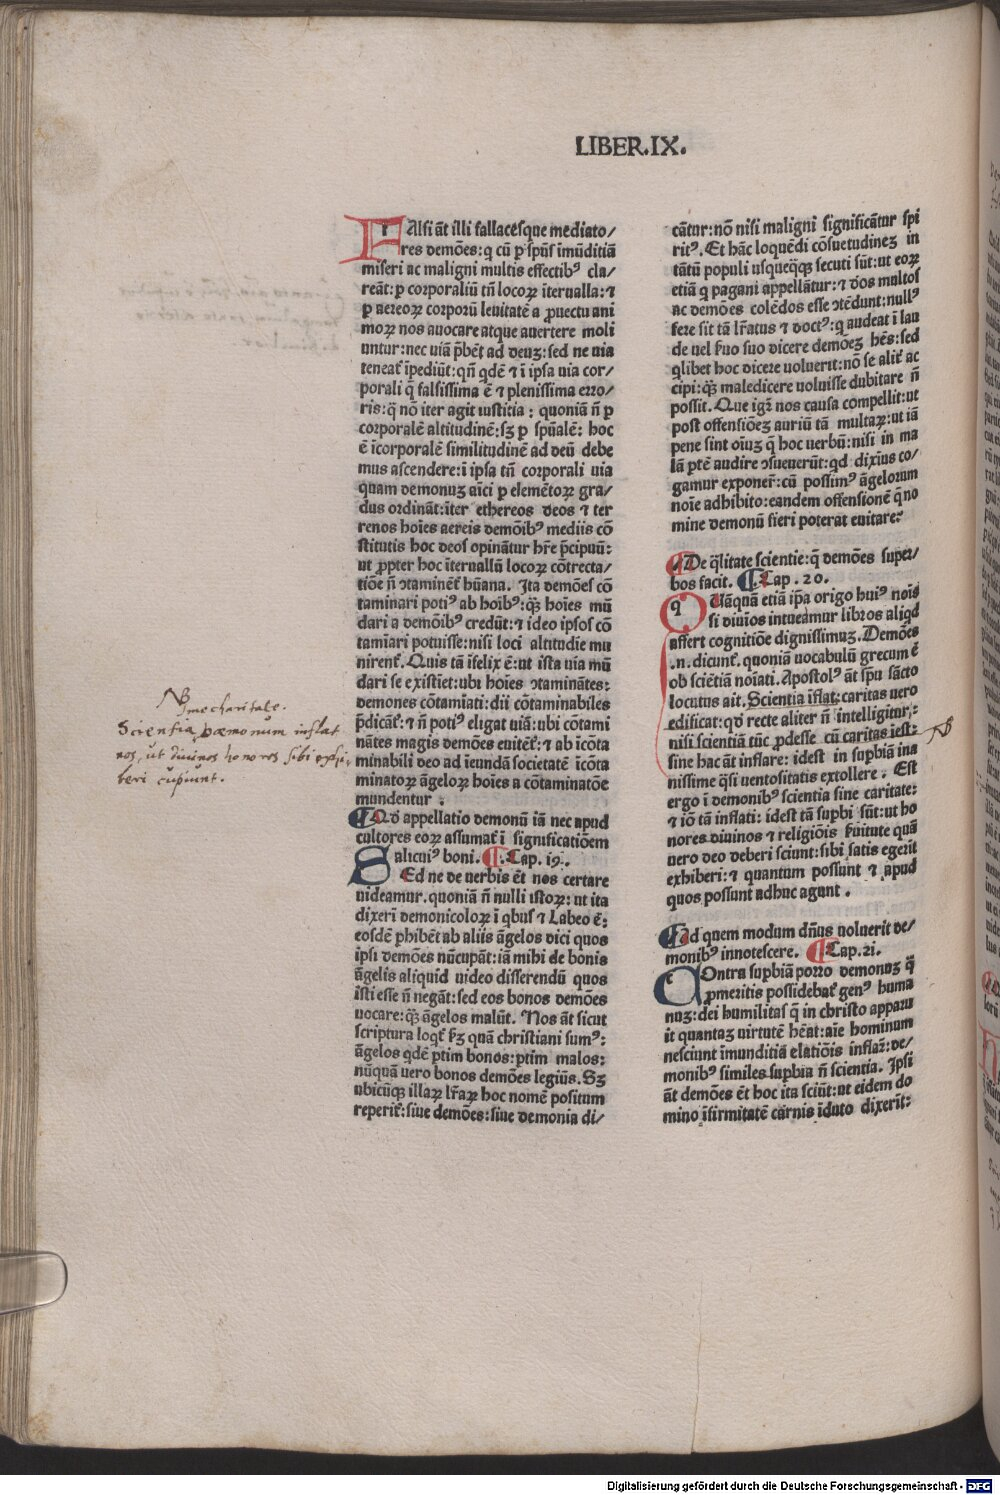 LIBER.IX.
FAlsi āt illi fallacesque mediato/
res demōes: q cū p spūs īmūditiā
miseri ac maligni multis effectibꝰ cla/
reāt: p corporaliū tñ locoꝝ īterualla: ⁊
p aereoꝝ corporū leuitatē a ꝓuectu ani
moꝝ nos auocare atque auertere moli
untur: nec uiā p̄bēt ad deuꝫ: sed ne uia
teneat᷑ īpediūt: qñ qdē ⁊ ī ipsa uia cor/
porali q̄ falsissima ē ⁊ plenissima erro/
ris: q̄ nō iter agit iustitia: quoniā ñ p
corporalē altitudinē: sꝫ p spūalē: hoc
ē īcorporalē similitudinē ad deū debe
mus ascendere: ī ipsa tñ corporali uia
quam demonuꝫ aīci p elemētoꝝ gra/
dus ordināt: īter ethereos deos ⁊ ter
renos hoīes aereis demōibꝰ mediis cō
stitutis hoc deos opināt̄ur hr̄e p̄cipuū:
ut ꝓpter hoc īteruallū locoꝝ cōtrecta/
tiōe ñ ↄtaminēt᷑ hūana. Ita demōes cō
taminari potiꝰ ab hoībꝰ: qꝫ hoīes mū
dari a demōibꝰ credūt: ⁊ ideo ipsos cō
tamīari potuisse: nisi loci altitudīe mu
nirent᷑. Quis tā īfelix ē: ut ista uia mū
dari se existīet: ubi hoīes ↄtaminātes:
demones cōtamīati: dii cōtaminabiles
p̄dicāt᷑: ⁊ ñ potiꝰ eligat uiā: ubi cōtami
nātes magis demōes euitēt᷑: ⁊ ab īcōta
minabili deo ad īeundā societatē īcōta
minatoꝝ āgeloꝝ hoīes a cōtaminatōe
mundentur.
¶ Qd appellatio demonū iā nec apud
cultores eoꝝ assumat᷑ ī significatiōem
alicuiꝰ boni. ¶ Cap. 19.
SEd ne de uerbis ēt nos certare
uideamur. quoniā ñ nulli istoꝝ: ut ita
dixeri demonicoloꝝ ī qbus ⁊ Labeo ē:
eosdē phibēt ab aliis āgelos dici quos
ipsi demōes nūcupāt: iā mihi de bonis
āgelis aliquid uideo disserendū quos
isti esse ñ negāt: sed eos bonos demōes
uocare: qꝫ āgelos malūt. Nos āt sicut
scriptura loqt᷑ ꝯꝫ quā christiani sumꝰ:
āgelos qdē ptim bonos: ptim malos:
nūquā uero bonos demōes legiūs. Sꝫ
ubicūqꝫ illaꝝ lr̄aꝝ hoc nomē positum
reperit᷑: siue demōes: siue demonia di/
cātur: nō nisi maligni significātur spi
ritꝰ. Et hāc loquēdi cōsuetudineꝫ in
tātū populi usqueqꝫqꝫ secuti sūt: ut eoꝝ
etiā q pagani appellātur: ⁊ dōs multos
ac demōes colēdos esse ↄtēdunt: nullꝰ
fere sit tā lr̄atus ⁊ doctꝰ: q audeat ī lau
de uel ẜuo suo dicere demōeꝫ hēs: sed
qlibet hoc dicere uoluerit: nō se alit᷑ ac
cipi: qꝫ maledicere uoluisse dubitare ñ
possit. Que igr̄ nos causa compellit: ut
post offensiōeꝫ auriū tā multaꝝ: ut iā
pene sint oīuꝫ q̄ hoc uerbū: nisi in ma
lā ptē audire ↄsueuerūt: qd dixīus co/
gamur exponer̄: cū possimꝰ āgelorum
noīe adhibito: eandem offensionē q̄ no
mine demonū fieri poterat euitare:
¶ De q̄litate scientie: q̄ demōes super/
bos facit. ¶ Cap. 20.
QUāquā etiā ip̄a origo huiꝰ nois
si diuīos intueamur libros aliqd
affert cognitiōe dignissimuꝫ. Demōes
.n. dicunt᷑. quoniā uocabulū grecum ē
ob sciētiā noīati. Apostolꝰ āt spū sācto
locutus ait. Scientia īflat: caritas uero
edificat: qd recte aliter ñ intelligitur:
nisi scientiā tūc ꝓdesse cū caritas iest:
sine hac āt inflare: idest in suꝑbiā ina
nissime q̄si uentositatis extollere. Est
ergo ī demonibꝰ scientia sine caritate:
⁊ iō tā inflati: idest tā supbi sūt: ut ho
nores diuinos ⁊ religiōis ẜuitute quā
uero deo deberi sciunt: sibi satis egerit
exhiberi: ⁊ quantum possunt ⁊ apud
quos possunt adhuc agunt.
¶ Ad quem modum dñus uoluerit de/
monibꝰ innotescere. ¶ Cap. 21.
COntra supbiā porro demonuꝫ q̄
ꝓmeritis possidebat᷑ genꝰ huma
nuꝫ: dei humilitas q̄ in christo apparu
it quantaꝫ uirtutē hēat: aīe hominum
nesciunt īmunditiā elatiōis inflaꝝ: de/
monibꝰ similes supbia ñ scientia. Ipsi
āt demōes ēt hoc ita sciūt: ut eidem do
mino īfirmitatē carnis īduto dixerīt:
NB
sine charitate.
Scientia Dæmonum inflat
nos, ut divinos honores sibi exhi-
beri cupiunt.
NB
Digitalisierung gefördert durch die Deutsche Forschungsgemeinschaft - DFG